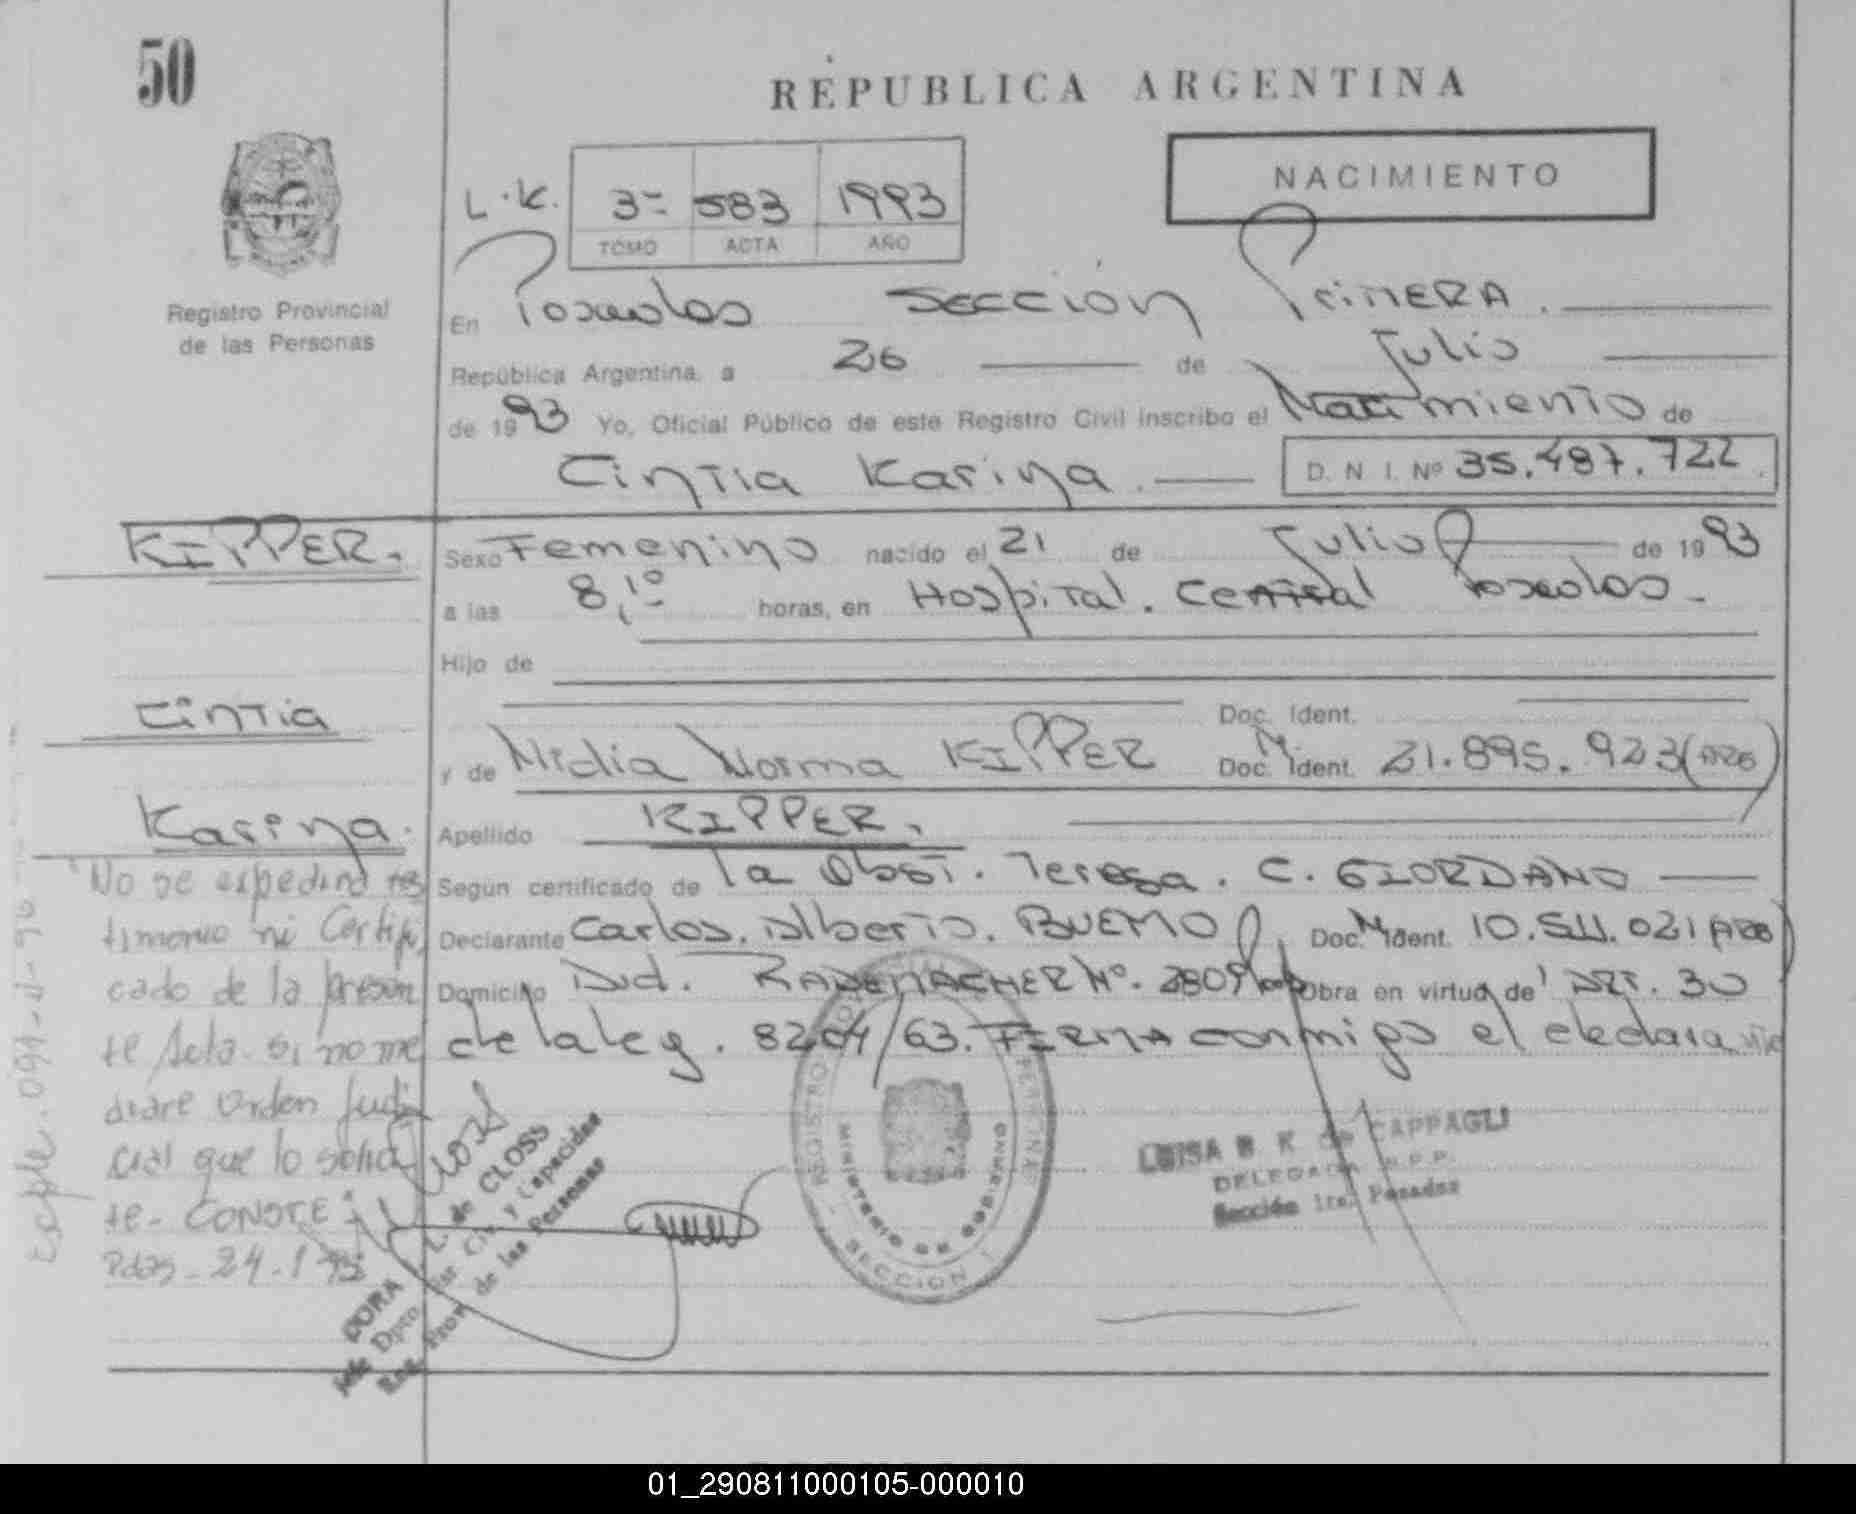 50
REPUBLICA ARGENTINA
NACIMIENTO
L.K. 3= 583 1993
TOMO ACTA AÑO
Registro Provincial
de las Personas
En Posadas Sección PriMERA.
República Argentina, a 26 de Julio
de 1993 Yo, Oficial Público de este Registro Civil inscribo el Nacimiento de
Cintia Karina. D. N. I. Nº 35.487.722.
KIPPER.
Sexo Femenino nacido el 21 de Julio de 1993
a las 8,10 horas, en Hospital. Central Posadas.
Hijo de
Doc. Ident.
Cintia
y de Nidia Norma KIPPER Doc. Ident. 21.895.923
Karina.
Apellido KIPPER.
Según certificado de la Obst. Teresa. C. GIORDANO
Declarante Carlos. Alberto. BUEMO Doc. Ident. 10.511.021
Domicilio Avd. RADEMACHER Nº. 2809 Obra en virtud de ART. 30
de la ley. 8204/63. FIRMA conmigo el declarante
"No se expedirá tes
timonio ni Certifi
cado de la presen
te Acta si no me
diare Orden Judi
cial que lo solici
te- CONSTE"
Pdas- 24-1-
Expte. 091-
DORA L. de CLOSS
Jefe Dpto. Civ. y Capacidad
Reg. Prov. de las Personas
REGISTRO
MINISTERIO DE GOBIERNO
SECCION 1
LUISA B K de CAPPAGLI
DELEGADA R.P.P.
Sección 1ra. Posadas
01_290811000105-000010